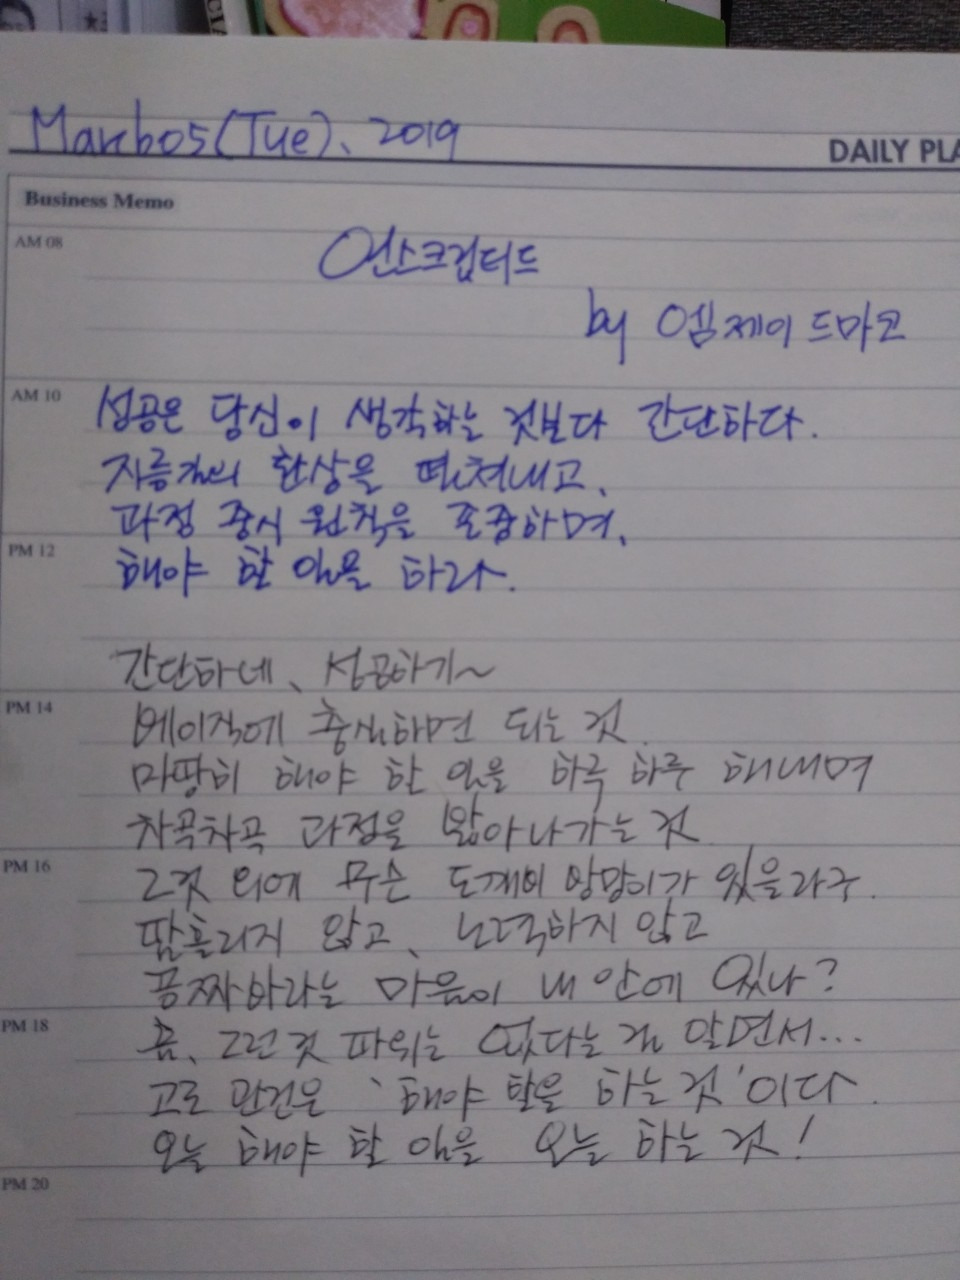 March 05(Tue), 2019
DAILY PLA
Business Memo
AM 08
언스크립티드
by 엠제이 드마코
AM 10
성공은 당신이 생각하는 것보다 간단하다.
지름길의 환상을 떨쳐내고,
과정 중시 원칙을 존중하며,
PM 12
해야 할 일을 하라.
간단하네, 성공하기~
PM 14
베이직에 충실하면 되는 것.
마땅히 해야 할 일을 하루 하루 해내며
차곡차곡 과정을 밟아나가는 것
PM 16
그것 외에 무슨 도깨비 방망이가 있을라구.
땀흘리지 않고, 노력하지 않고
공짜바라는 마음이 내 안에 있나?
PM 18
흠, 그런 것 따위는 없다는 걸 알면서...
고로 관건은 '해야 할일을 하는 것'이다.
오늘 해야 할 일을 오늘 하는 것!
PM 20